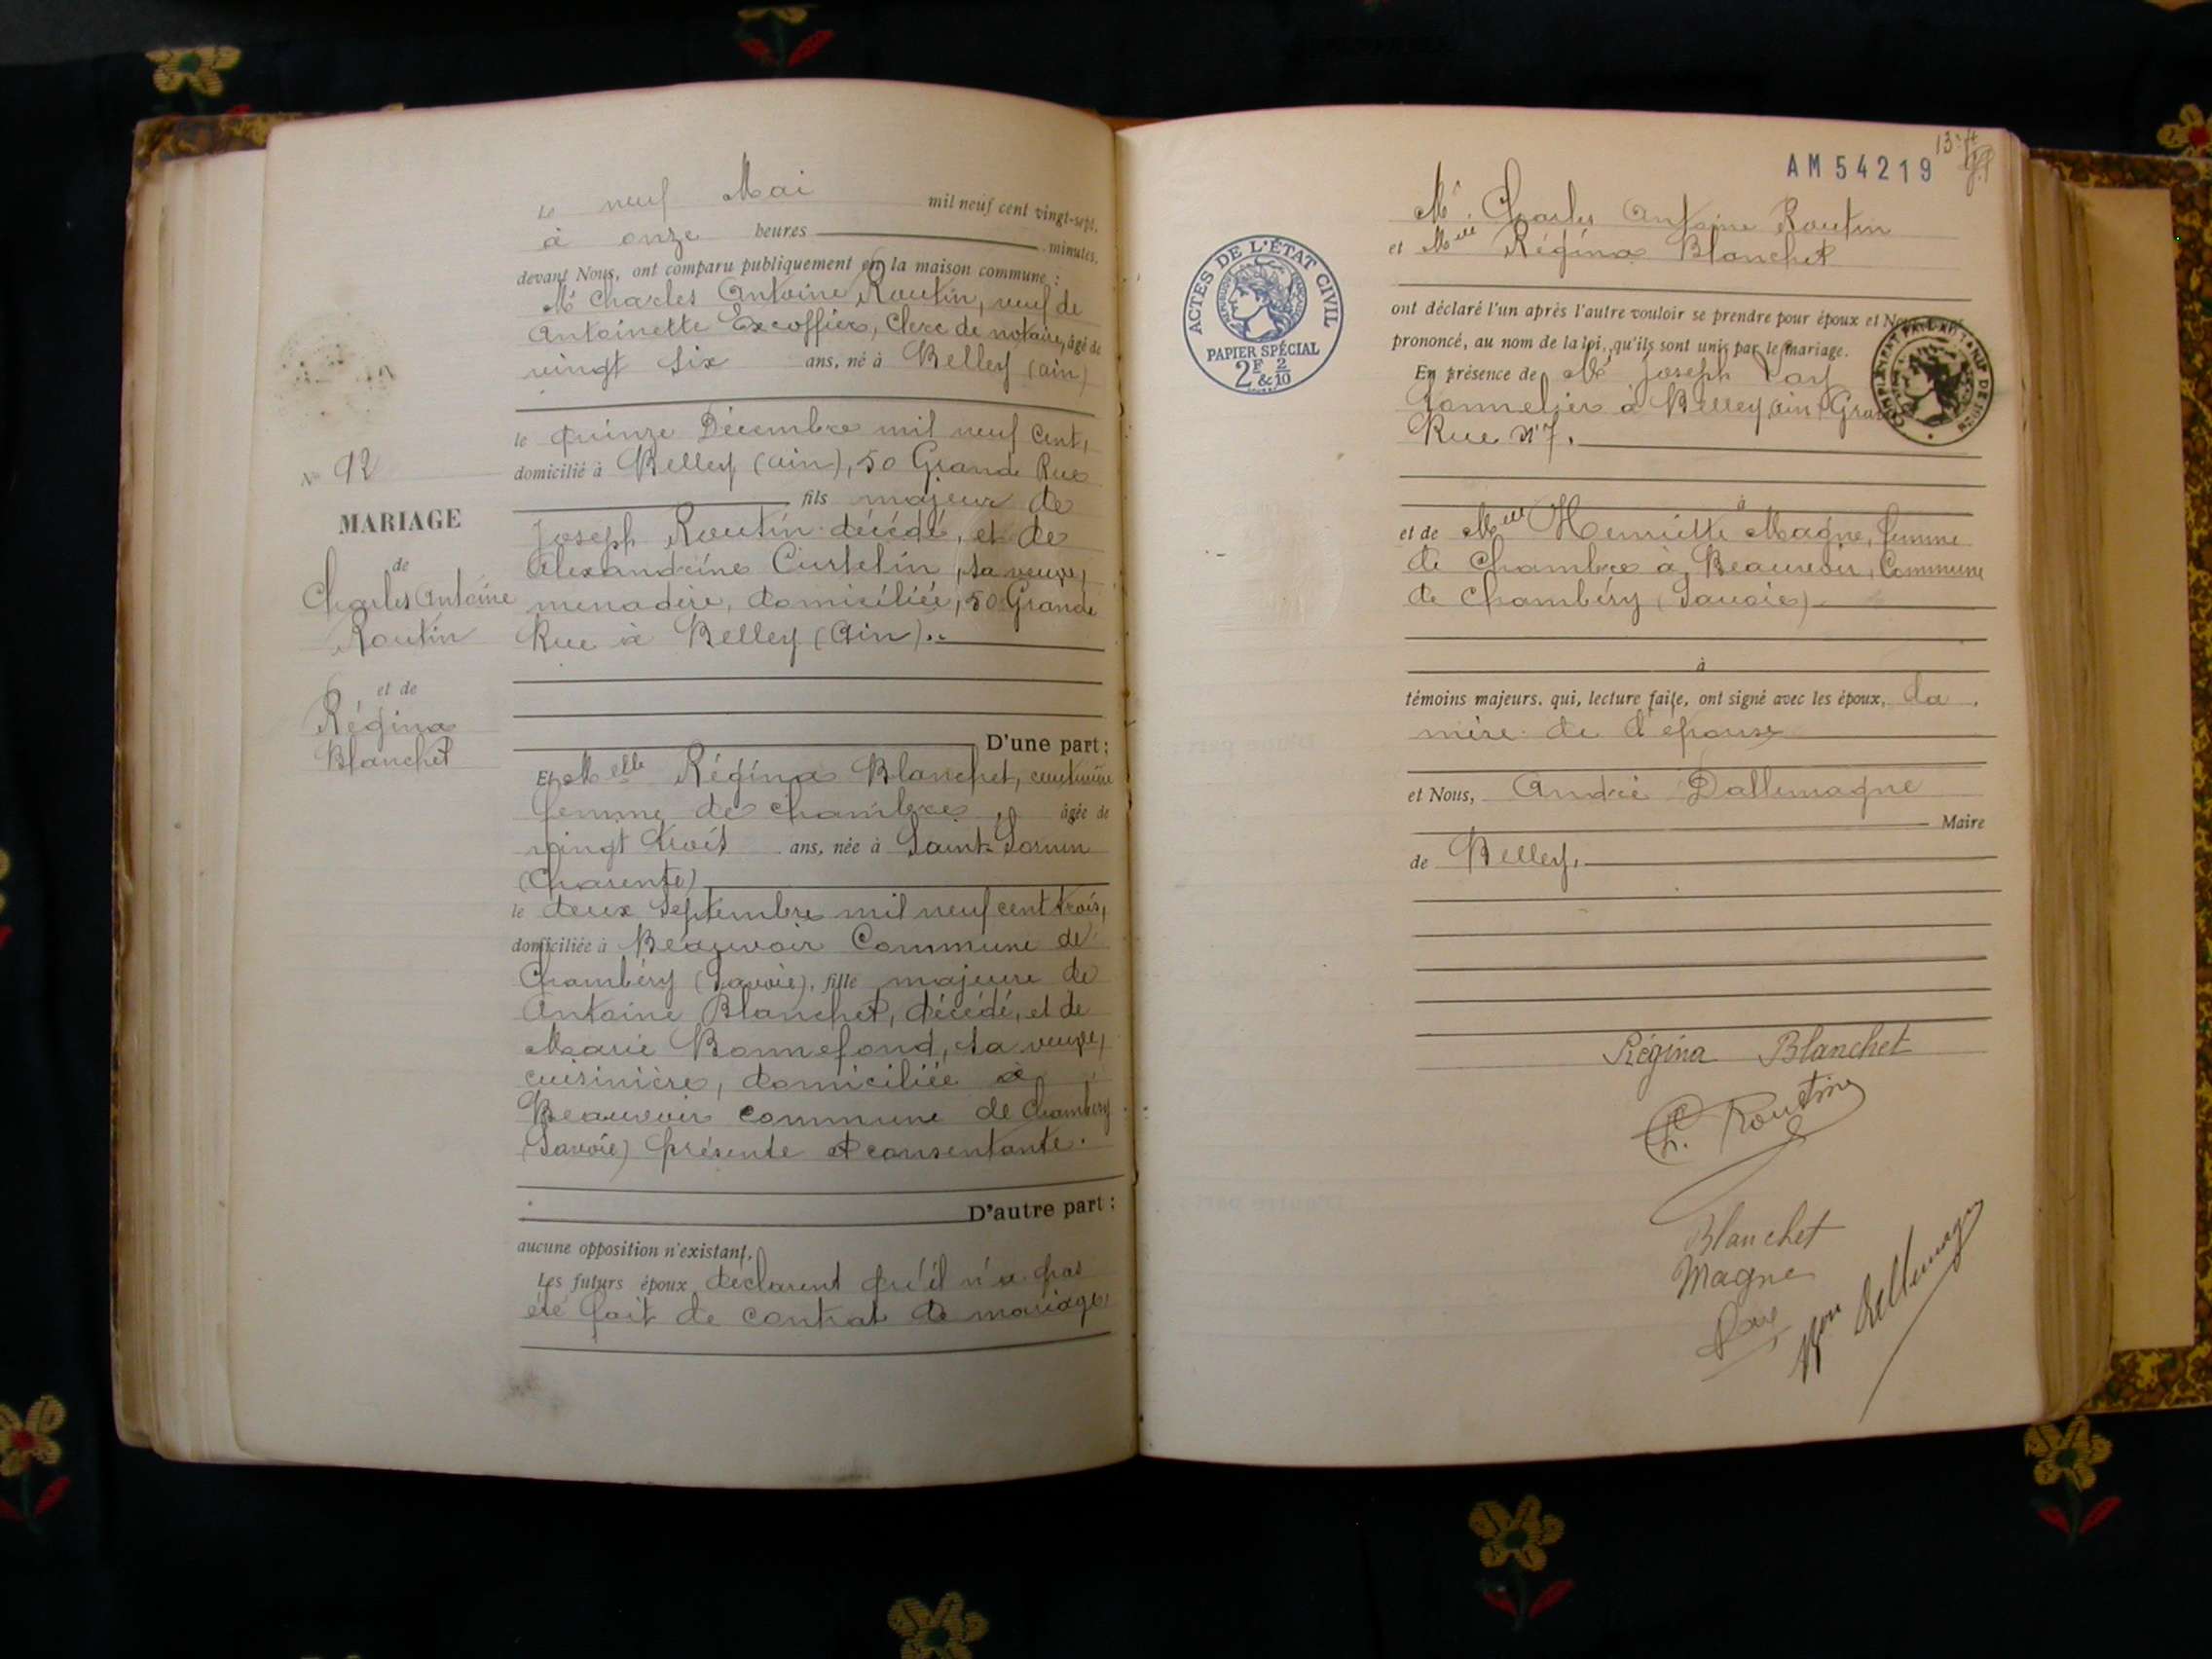 le neuf Mai mil neuf cent vingt-sept,
à onze heures minutes,
devant Nous, ont comparu publiquement en la maison commune :
Mr Charles Antoine Routin, veuf de
Antoinette Excoffier, Clerc de notaire, âgé de
vingt six ans, né à Belley (ain)
le quinze Décembre mil neuf Cent,
domicilié à Belley (ain), 50 Grande Rue
fils majeur de
Joseph Routin décédé, et de
Alexandrine Curtelin, sa veuve,
menagère, domiciliée, 50 Grande
Rue à Belley (Ain).
D'une part :
Et Melle Régina Blanchet,
femme de chambre, âgée de
vingt trois ans, née à Saint-Sornin
(Charente)
le deux Septembre mil neuf cent trois,
domiciliée à Beauvoir Commune de
Chambéry (Savoie), fille majeure de
Antoine Blanchet, décédé, et de
Marie Bonnefond, sa veuve,
cuisinière, domiciliée à
Beauvoir commune de Chambéry
(Savoie) présente et consentante.
D'autre part :
aucune opposition n'existant,
Les futurs époux déclarent qu'il n'a pas
été fait de contrat de mariage,
No 92
MARIAGE
de
Charles Antoine
Routin
et de
Régina
Blanchet
AM 54219
ACTES DE L'ÉTAT CIVIL
RÉPUBLIQUE FRANÇAISE
PAPIER SPÉCIAL
2F & 2/10
Mr. Charles Antoine Routin
et Melle Régina Blanchet
ont déclaré l'un après l'autre vouloir se prendre pour époux et
prononcé, au nom de la loi, qu'ils sont unis par le mariage.
En présence de Mr Joseph
Tonnelier à Belley, ain,
Rue No 7.
à
et de Melle Henriette Magne, femme
de Chambre à Beauvoir, Commune
de Chambéry (Savoie)
à
témoins majeurs, qui, lecture faite, ont signé avec les époux, la
mère de l'épouse
et Nous, André Dallemagne
Maire
de Belley.
Régina Blanchet
Ch. Routin
Blanchet
Magne
Bon Dallemagne